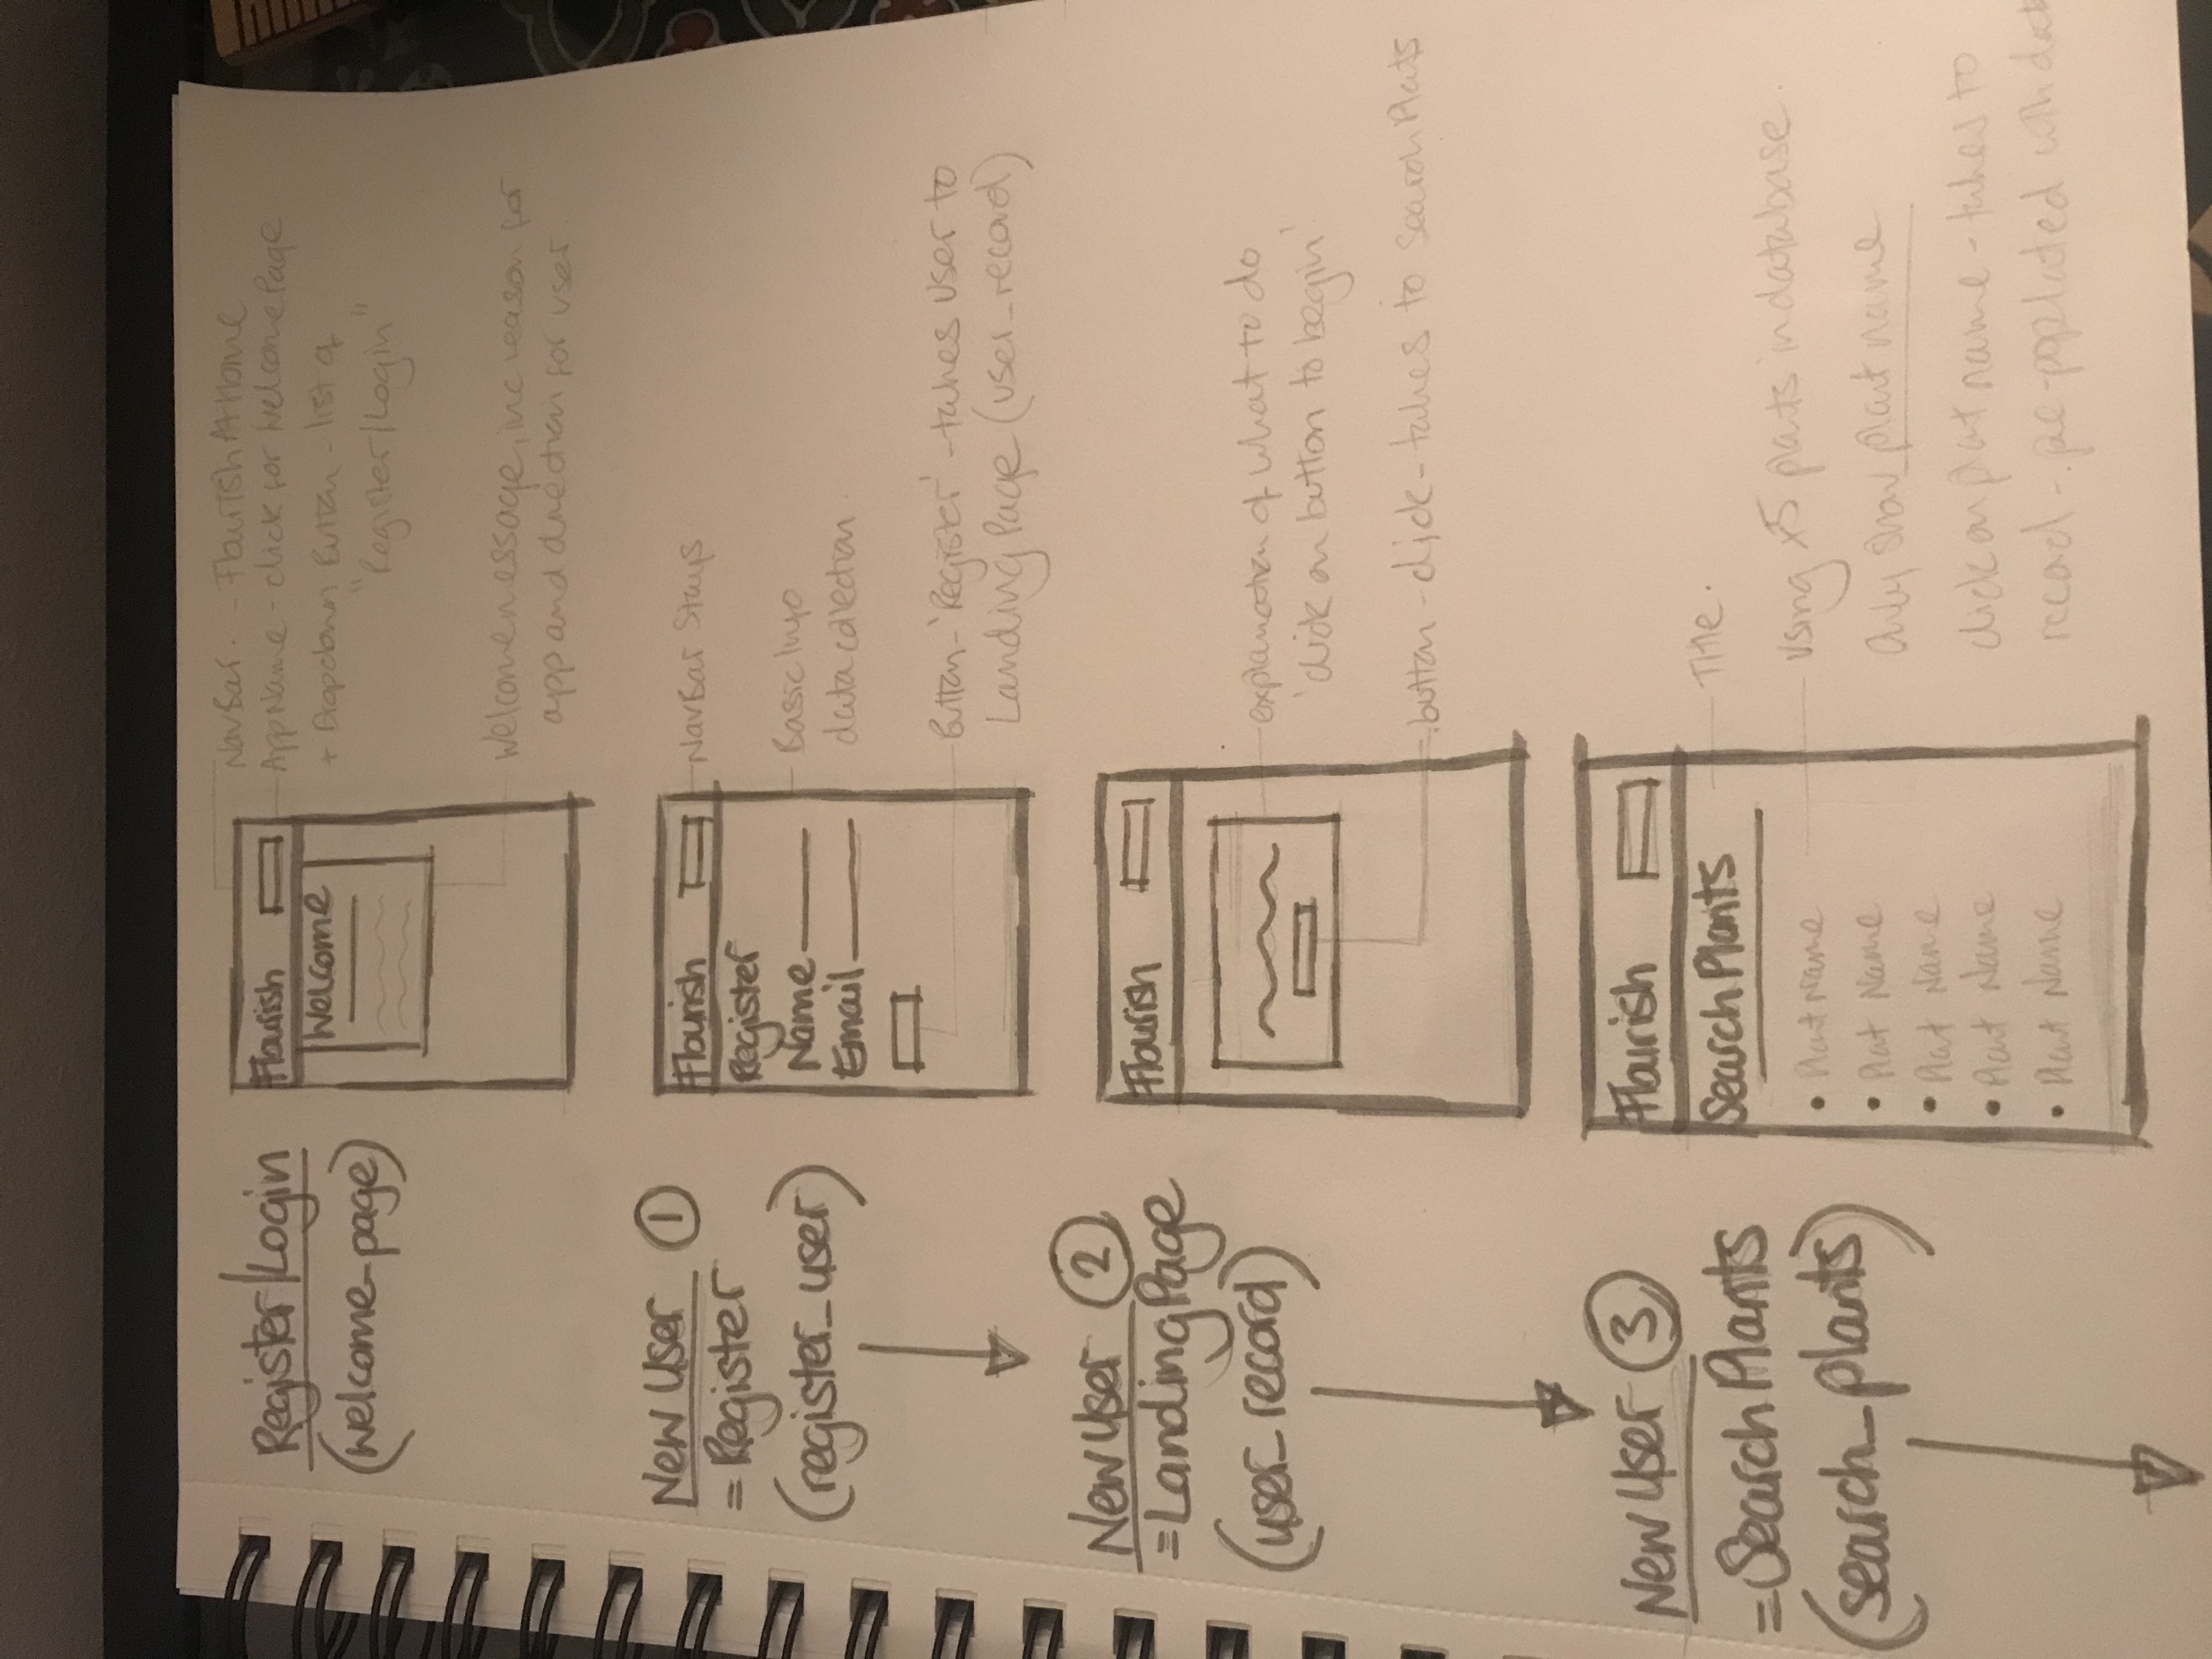 Register/Login
(welcome_page)
Flourish
Welcome
NavBar. - FlourishAtHome
AppName - click for WelcomePage
+ Dropdown Button - list of
"Register/Login"
Welcome message, inc reason for
app and direction for user.
New User 1
= Register
(register_user)
Flourish
Register
Name
Email
NavBar Stays
Basic Info
data collection.
Button - 'Register' - takes user to
Landing Page (user_record)
New User 2
= Landing Page
(user_record)
Flourish
explanation of what to do
'click on button to begin'
button - click - takes to Search Plats
New User 3
= Search Plants
(search_plants)
Flourish
Search Plants
• Plant Name
• Plat Name
• Plat Name
• Plant Name
• Plant Name
Title.
Using x5 plants in database.
Only show plant name
click on plat name - takes to
record - pre-poplated with data